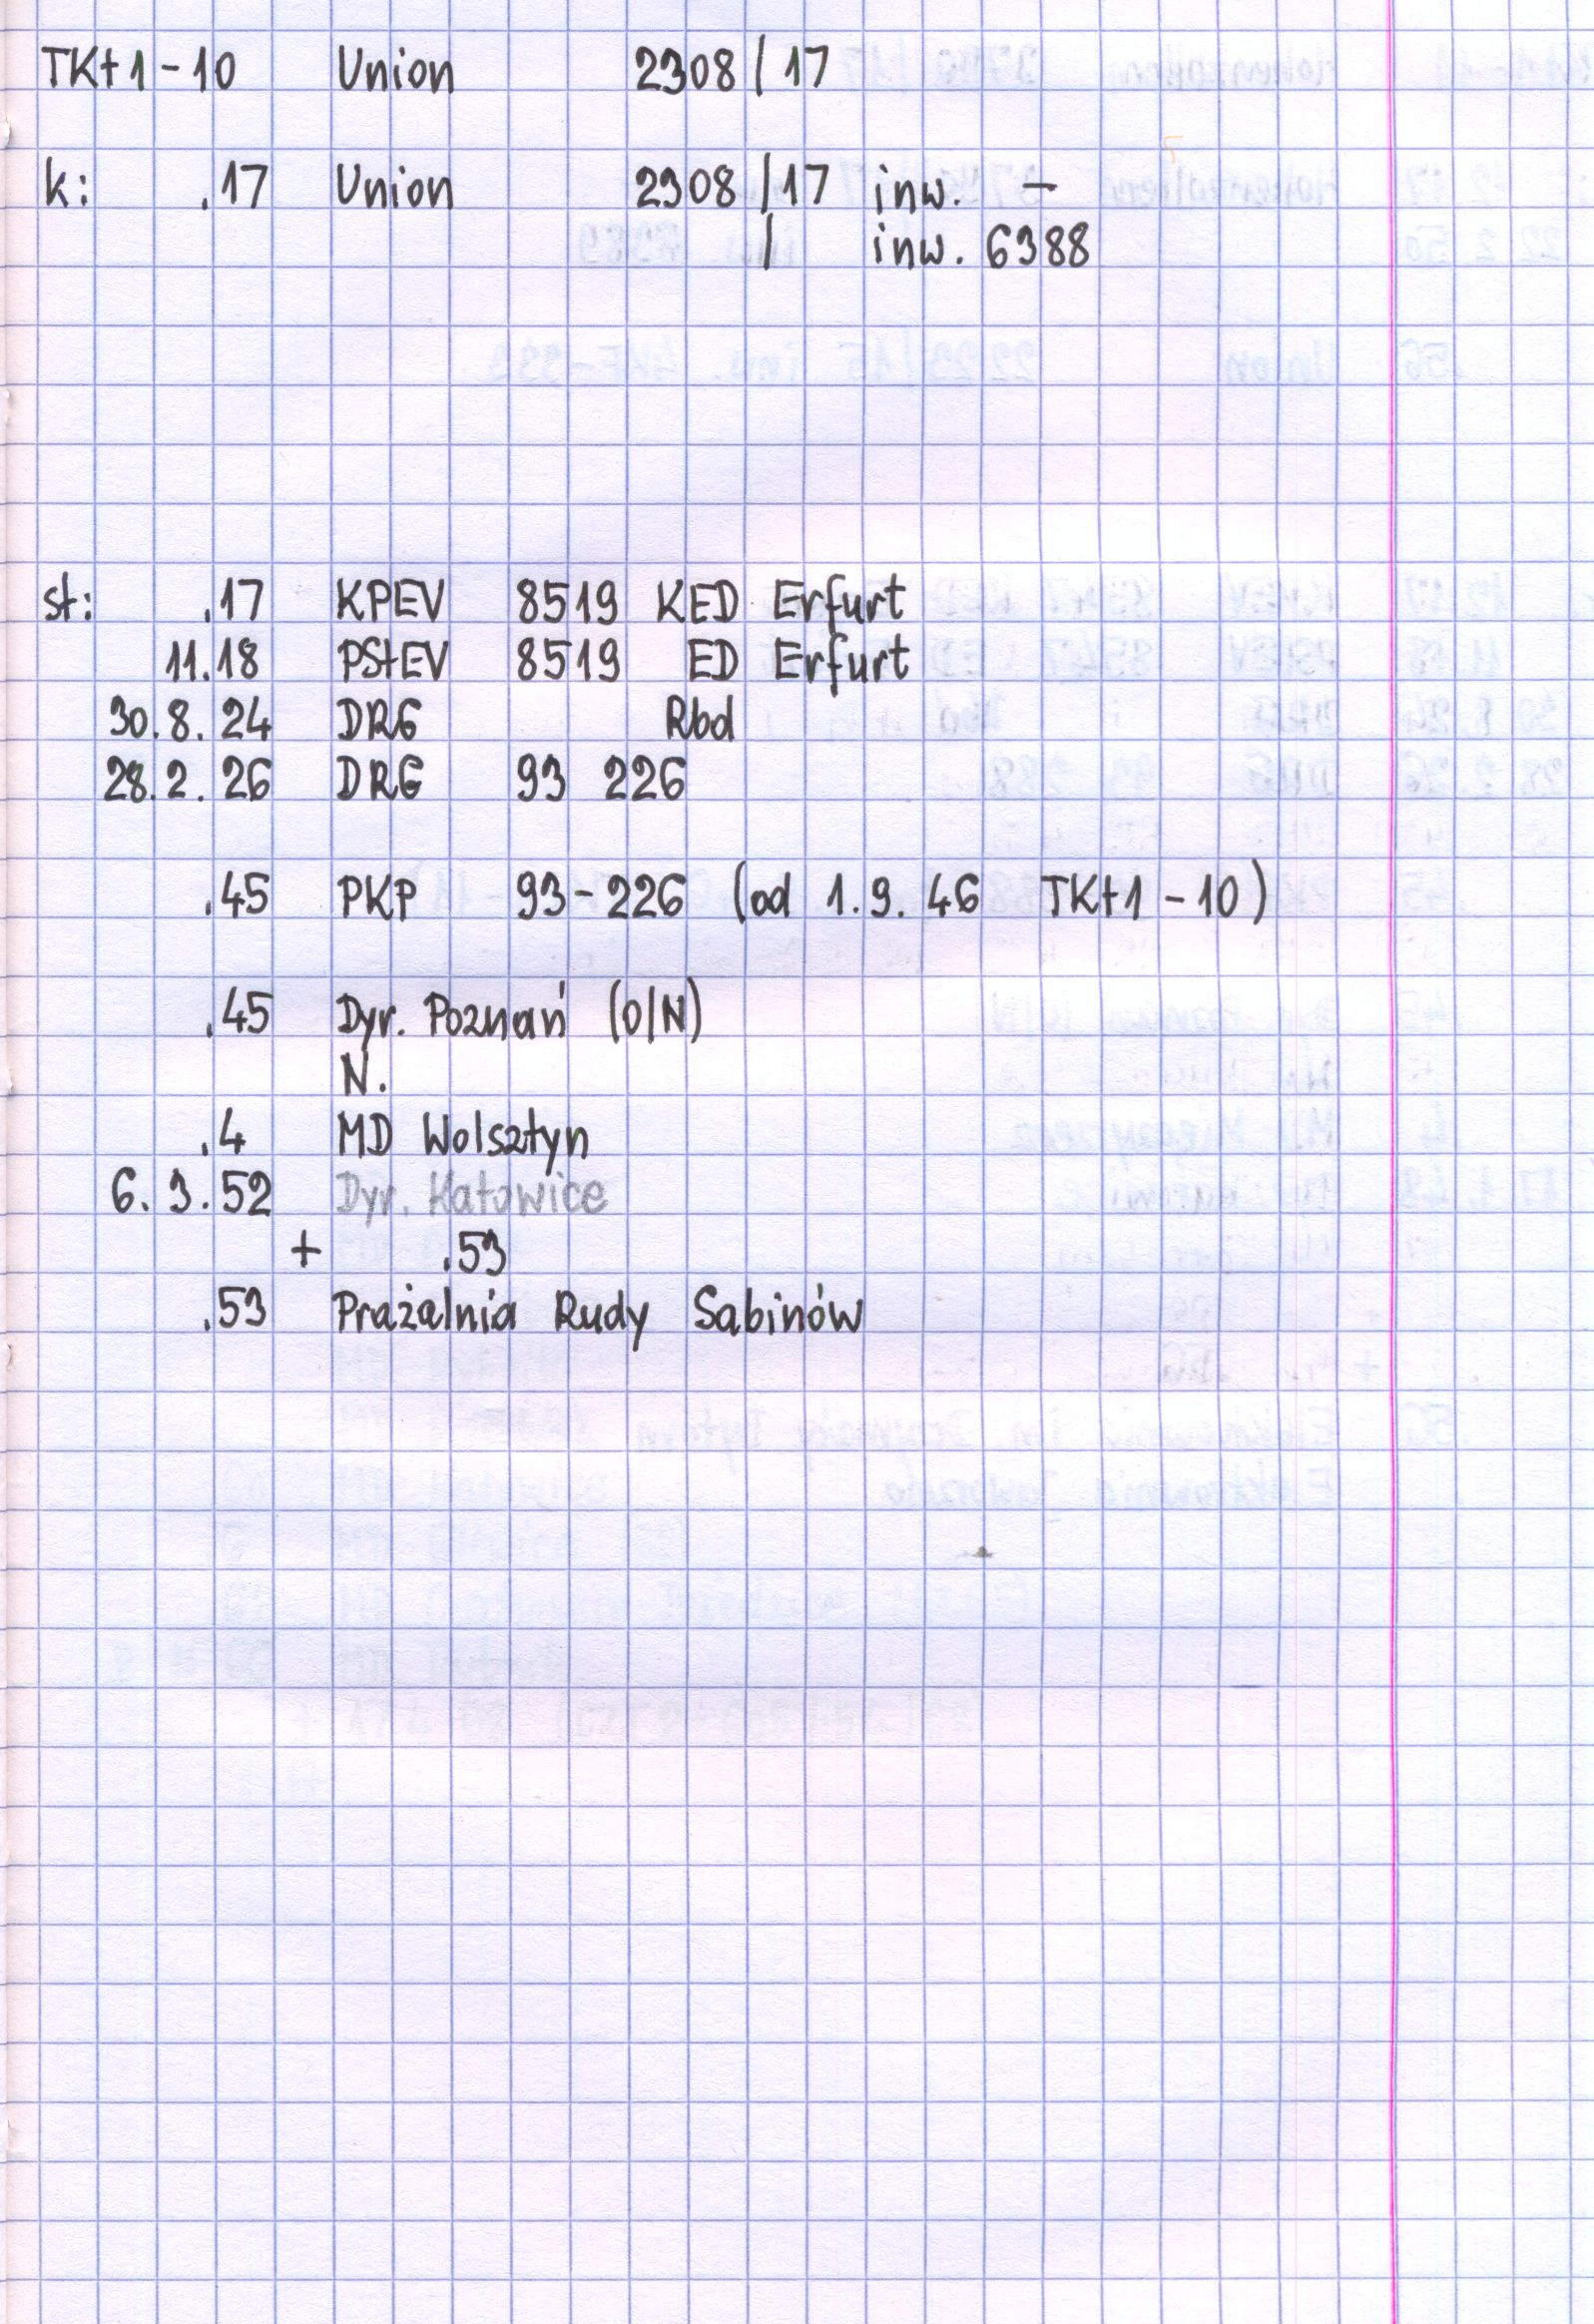 TKt1-10 Union 2308/17
k: .17 Union 2308/17 inw. –
/ inw. 6388
st: .17 KPEV 8519 KED Erfurt
11.18 PStEV 8519 ED Erfurt
30.8.24 DRG Rbd
28.2.26 DRG 93 226
.45 PKP 93-226 (od 1.9.46 TKt1-10)
.45 Dyr. Poznań (O/N)
N.
.4 MD Wolsztyn
6.3.52 Dyr. Katowice
+ .53
.53 Prażalnia Rudy Sabinów